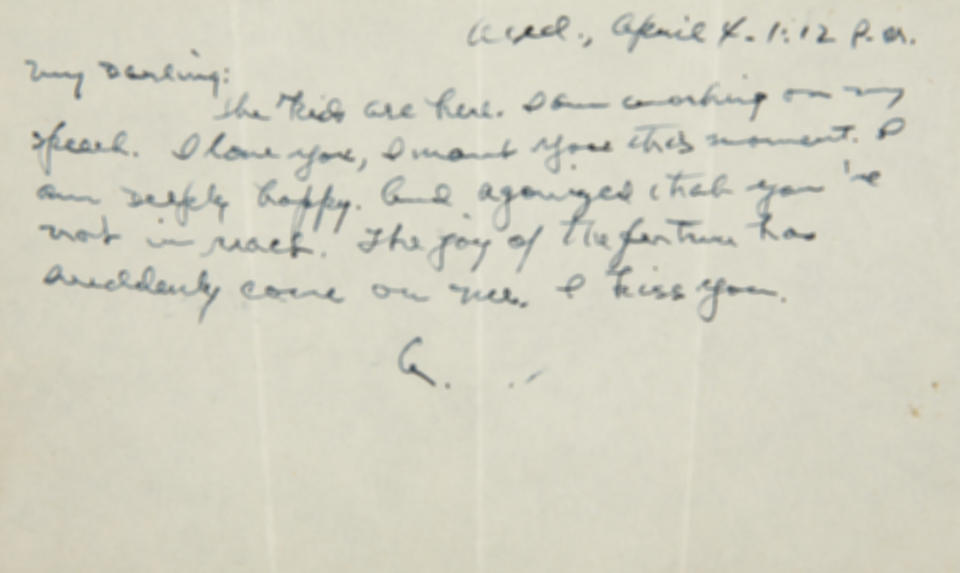 Wed., April 4. 1:12 P.M.
My Darling:
The kids are here. I am working on my
speech. I love you, I want you this moment. I
am deeply happy. And agonized that you're
not in reach. The joy of the future has
suddenly come on me. I kiss you.
A.